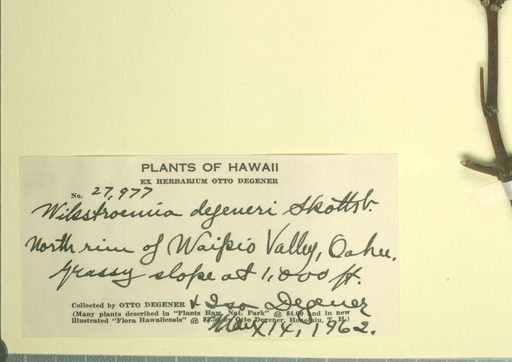 PLANTS OF HAWAII
EX HERBARIUM OTTO DEGENER
No. 27,977
Wikstroemia degeneri Skottsb.
North rim of Waipio Valley, Oahu.
Grassy slope at 1,000 ft.
Collected by OTTO DEGENER & Isa Degener
(Many plants described in "Plants Haw. Nat. Park" @ $4.00 and in new
illustrated "Flora Hawaiiensis" @ by Otto Degener, Honolulu, T. H.)
May 14, 1962.